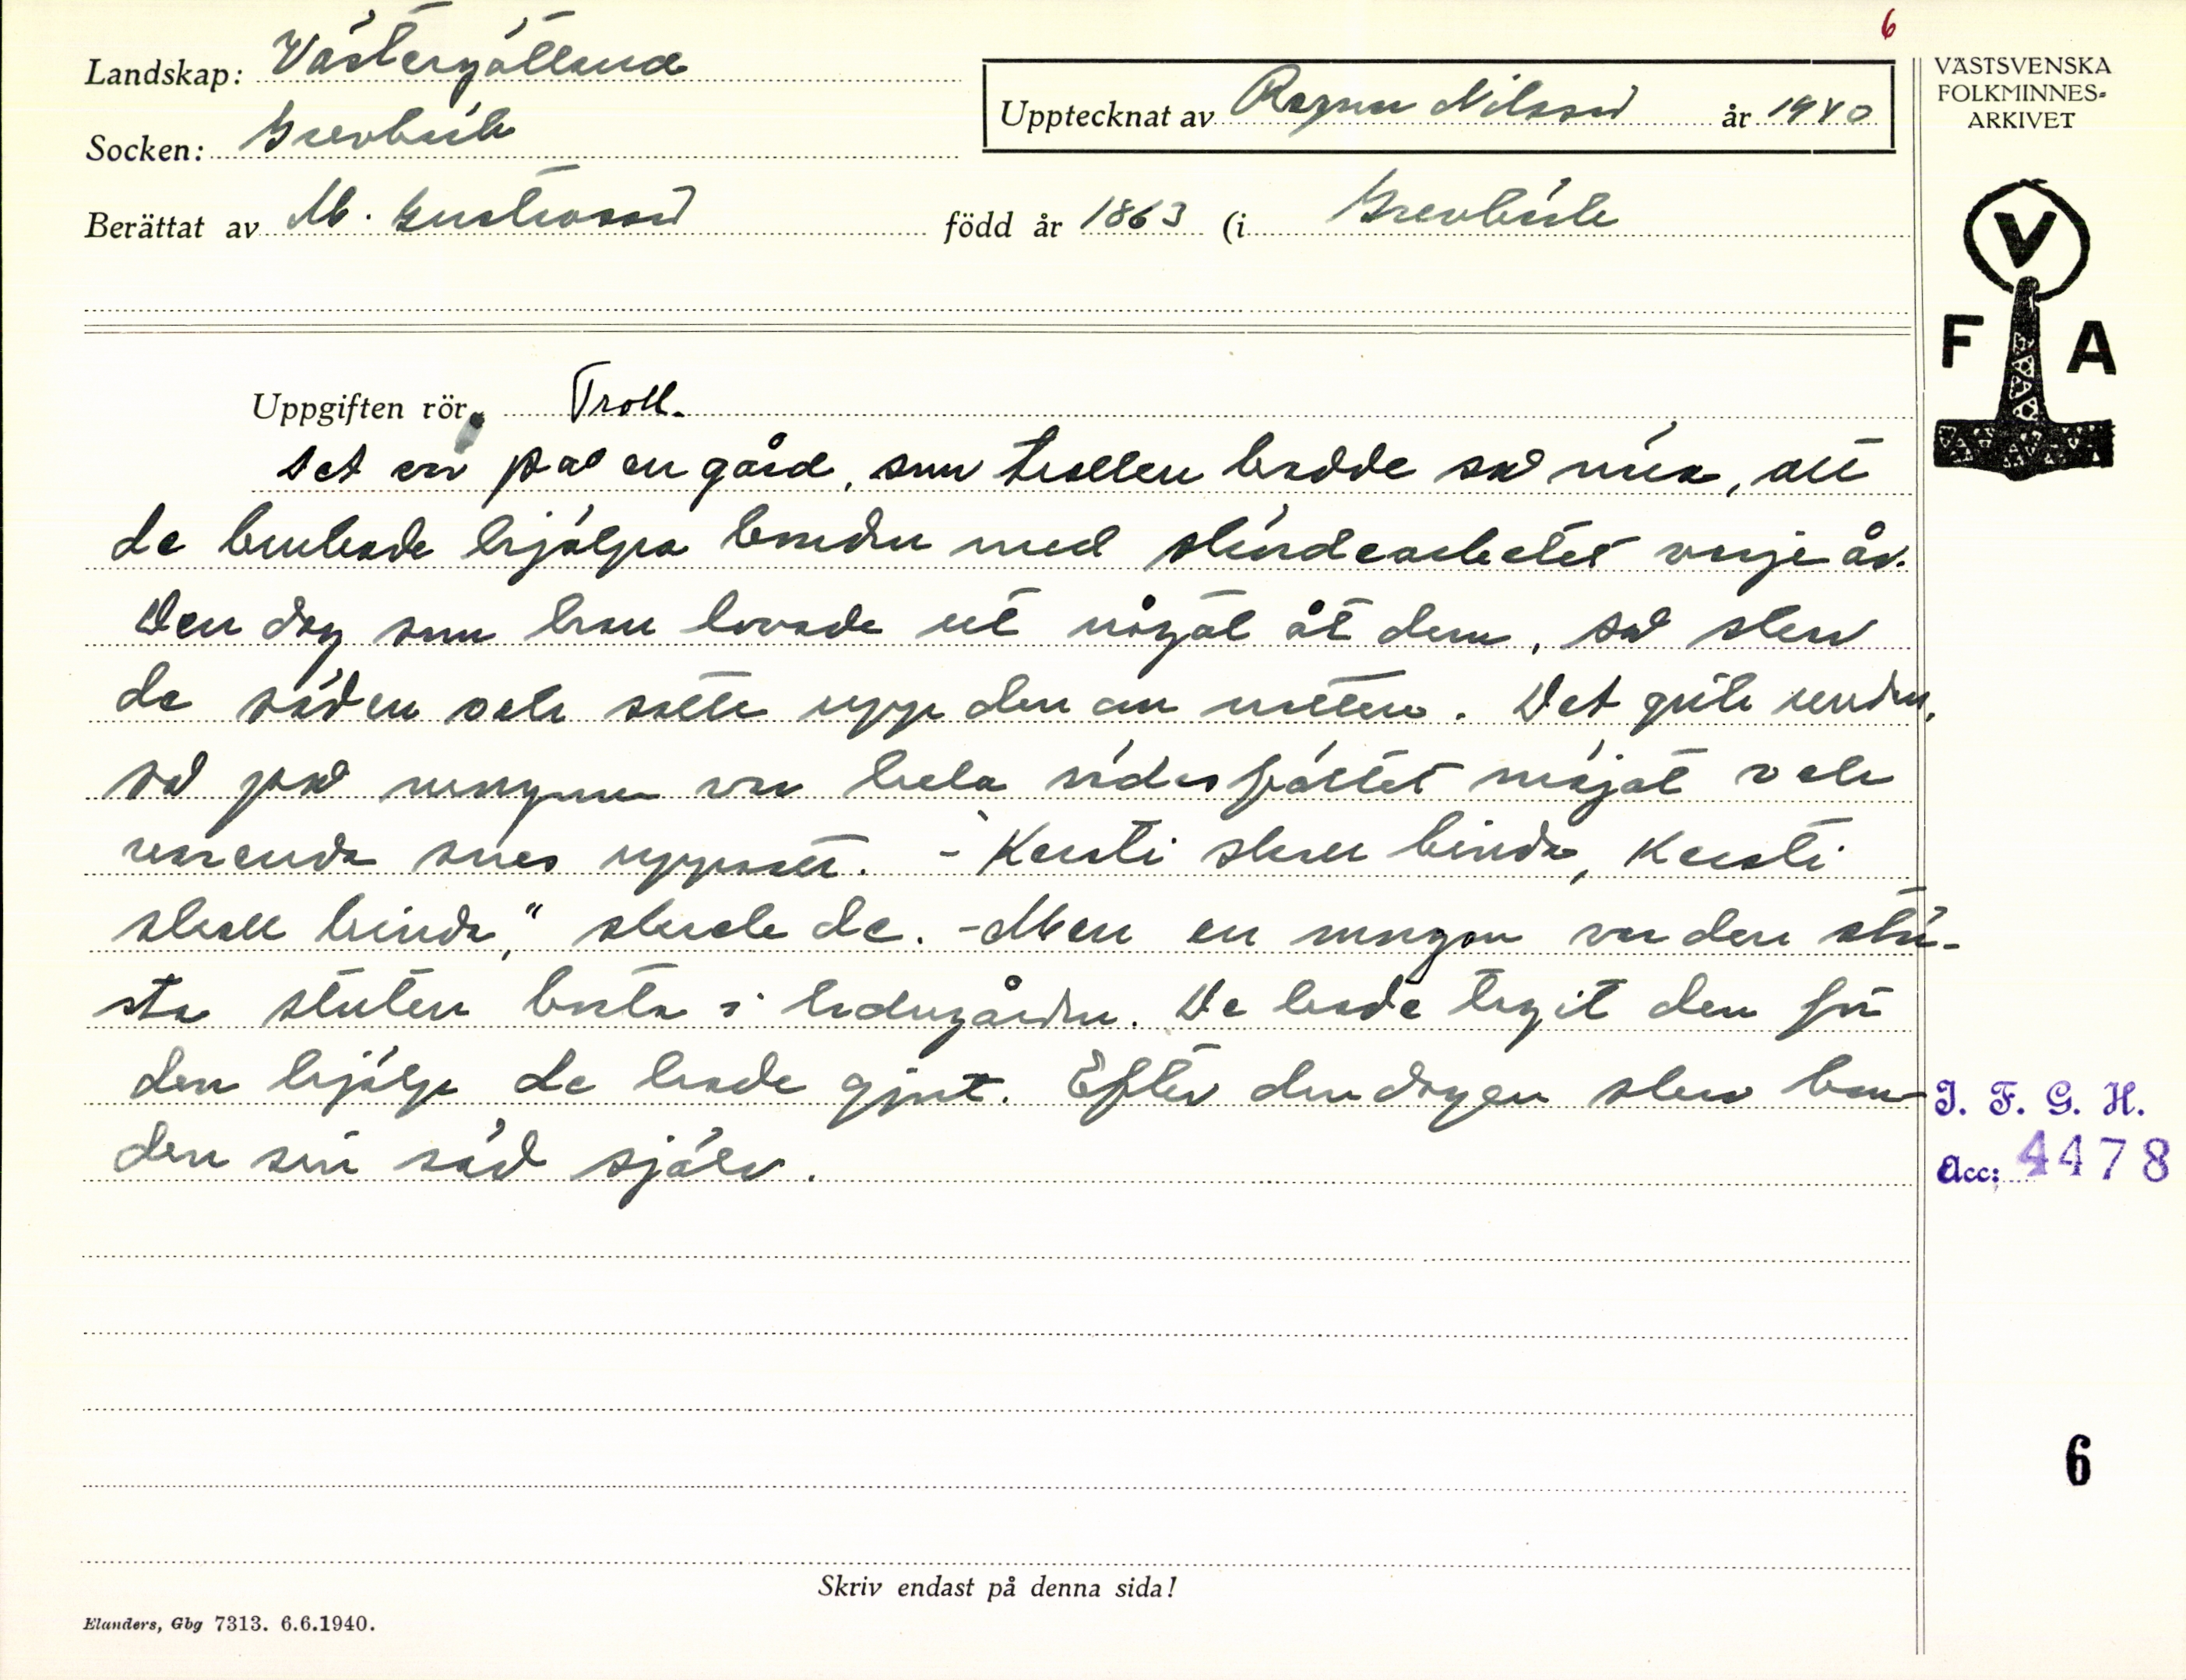 6
Landskap: Västergötland
Socken: Grevbäck
Upptecknat av Ragnar Nilsson år 1940
Berättat av M. Gustavsson född år 1863 (i Grevbäck
VÄSTSVENSKA
FOLKMINNES-
ARKIVET
V
F A
Uppgiften rör Troll.
Det var på en gård, som trollen bodde så nära, att
de brukade hjälpa bonden med skördearbetet varje år.
Den dag som han lovade ut något åt dem, så skar
de säden och satte upp den om natten. Det gick undan,
så på morgonen var hela sädesfältet mejat och
varenda snes uppsatt. - "Kersti skar binda, Kersti
skall binda," skrek de. - Men en morgon var den stör-
sta stuten borta i ladugården. De hade tagit den för
den hjälp de hade gjort. Efter den dagen skar bon-
den sin säd själv.
I. F. G. H.
Acc: 4478
6
Skriv endast på denna sida!
Elanders, Gbg 7313. 6.6.1940.